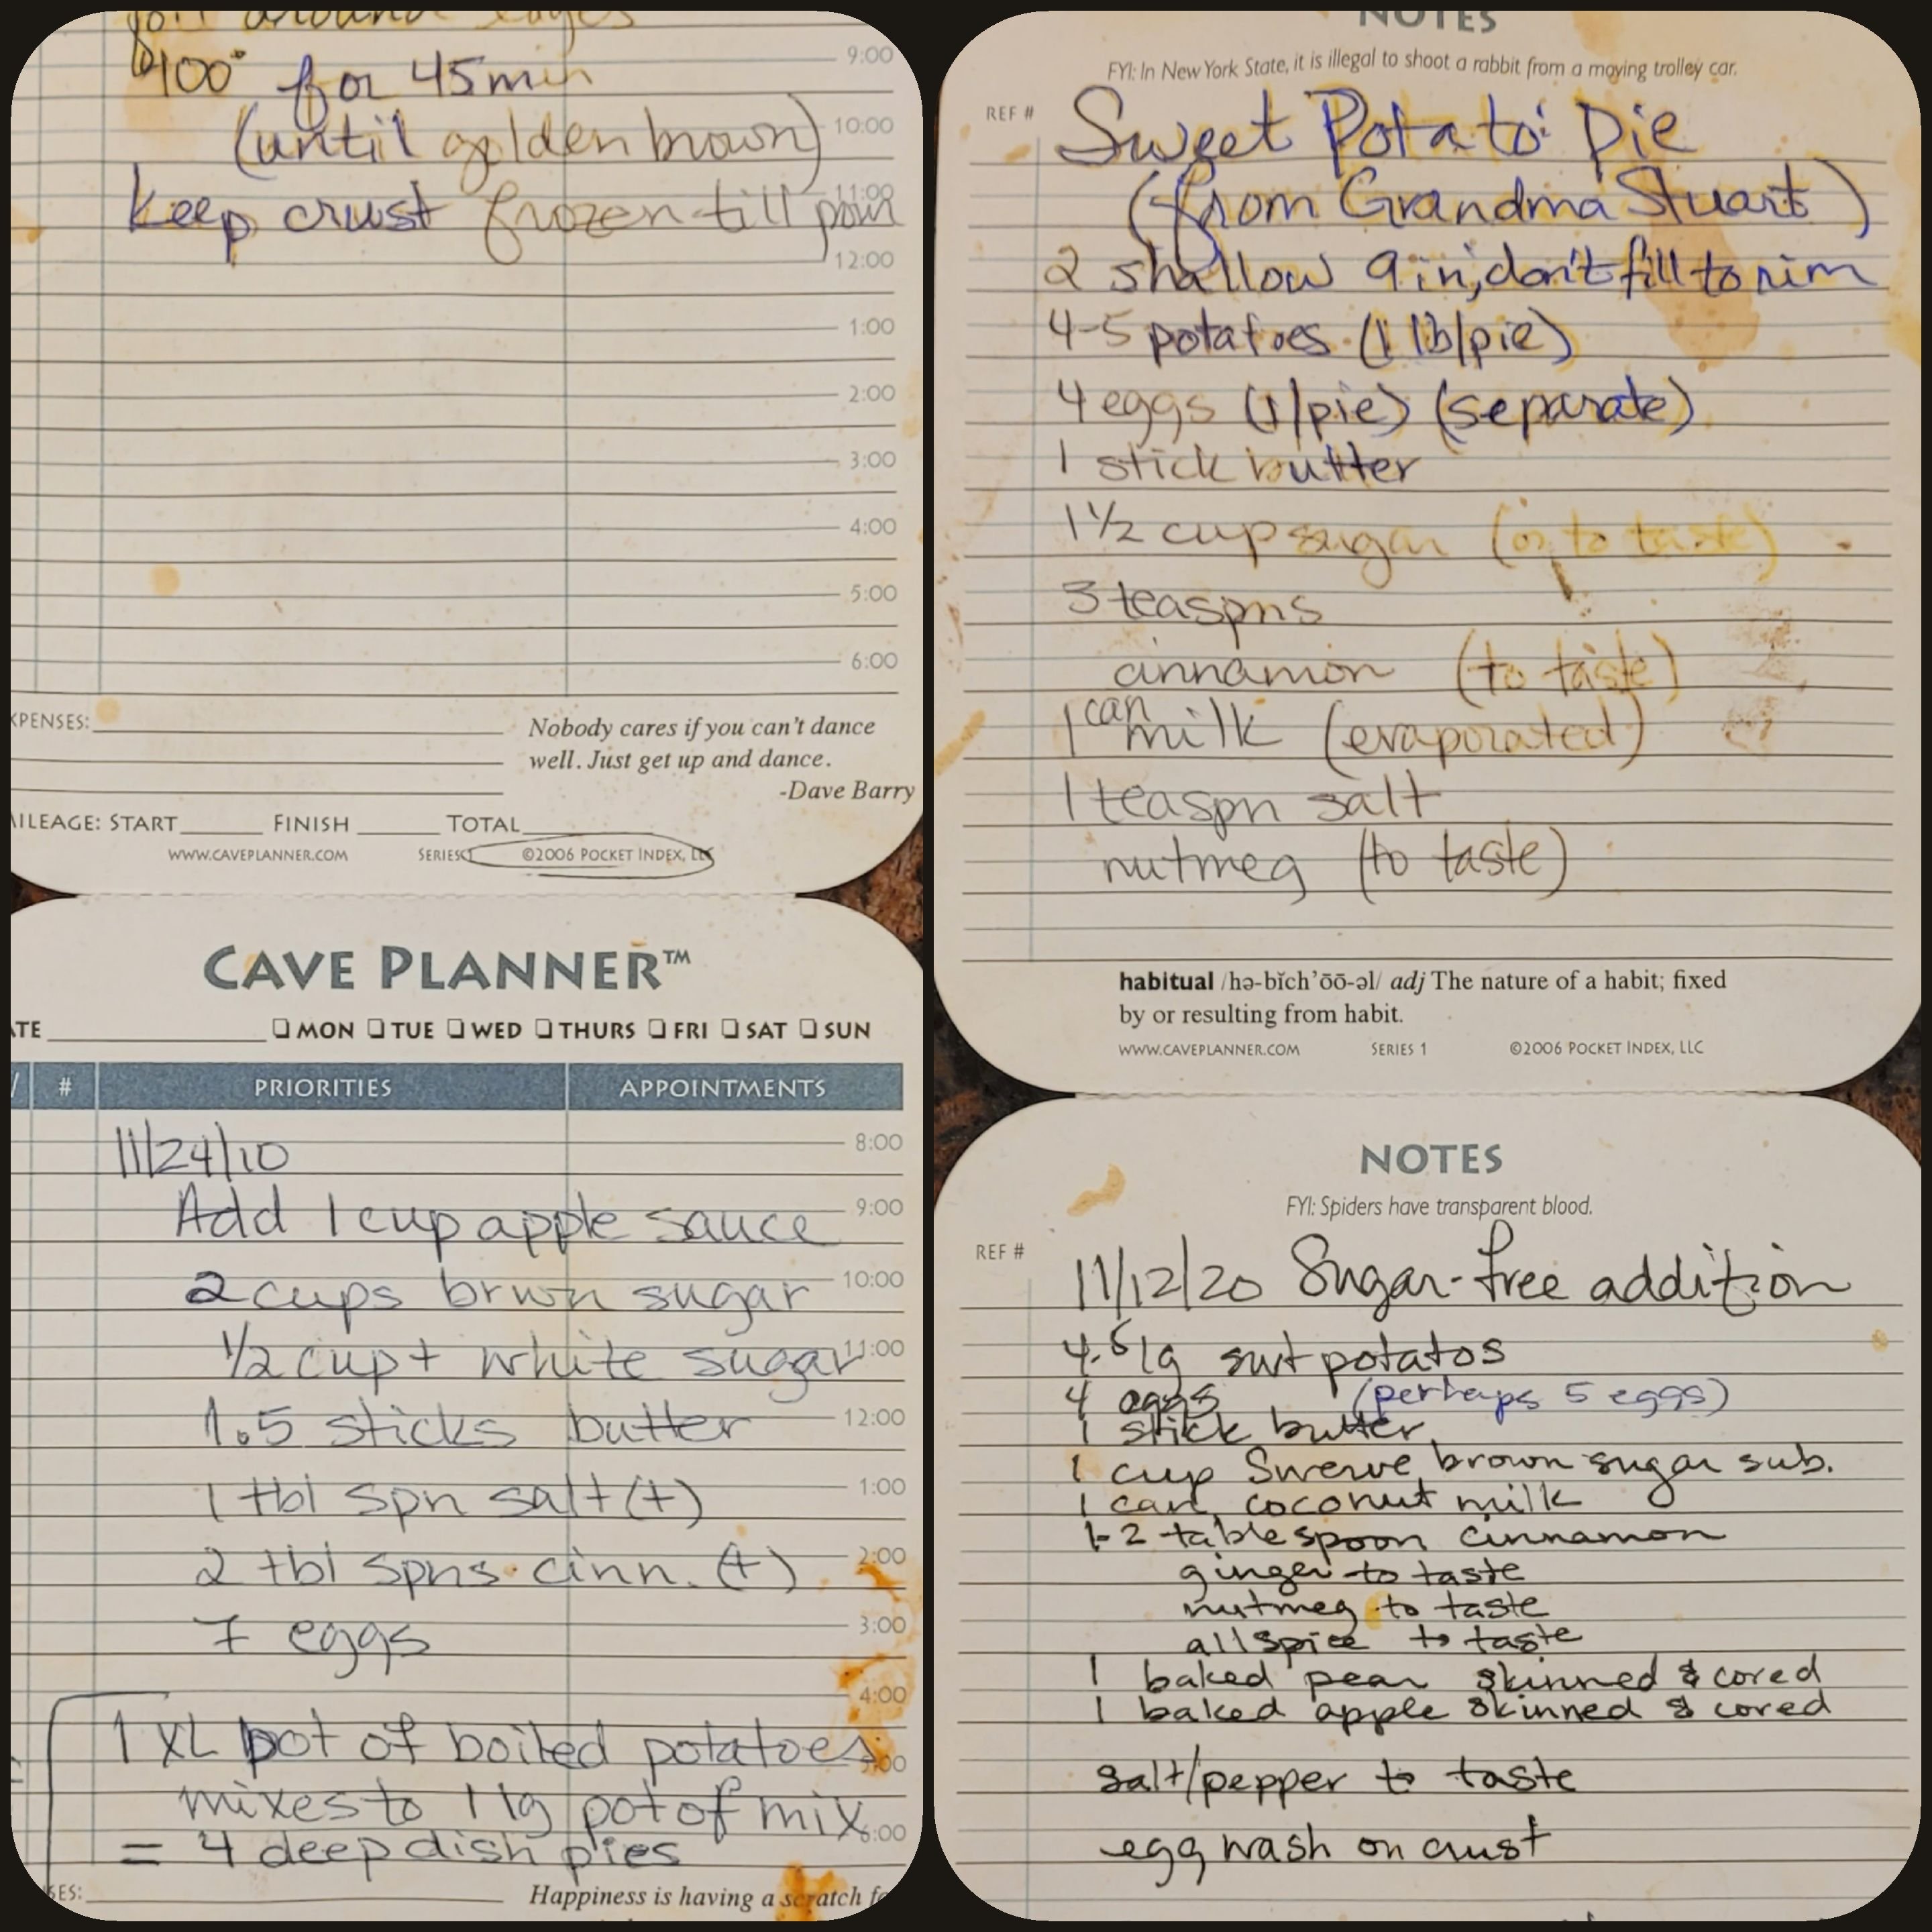 foil around edges
400° for 45min
(until golden brown)
keep crust frozen till pour
9:00
10:00
11:00
12:00
1:00
2:00
3:00
4:00
5:00
6:00
XPENSES:
Nobody cares if you can't dance
well. Just get up and dance.
-Dave Barry
ILEAGE: START FINISH TOTAL
WWW.CAVEPLANNER.COM SERIES ©2006 POCKET INDEX, LLC
CAVE PLANNER™
ATE MON TUE WED THURS FRI SAT SUN
/ # PRIORITIES APPOINTMENTS
11/24/10
Add 1 cup apple sauce
2 cups brwn sugar
1/2 cup + white sugar
1.5 sticks butter
1 tbl spn salt (+)
2 tbl spns cinn. (+)
7 eggs
1 XL pot of boiled potatoes
mixes to 1 lg pot of mix
= 4 deep dish pies
8:00
9:00
10:00
11:00
12:00
1:00
2:00
3:00
4:00
5:00
6:00
SES:
Happiness is having a scratch fo
NOTES
FYI: In New York State, it is illegal to shoot a rabbit from a moving trolley car.
REF #
Sweet Potato Pie
(from Grandma Stuart)
2 shallow 9in; don't fill to rim
4-5 potatoes (1 lb/pie)
4 eggs (1/pie) (separate)
1 stick butter
1 1/2 cup sugar (or to taste)
3 teaspns
cinnamon (to taste)
1 can milk (evaporated)
1 teaspn salt
nutmeg (to taste)
habitual /hə-bĭch'ōō-əl/ adj The nature of a habit; fixed
by or resulting from habit.
WWW.CAVEPLANNER.COM SERIES 1 ©2006 POCKET INDEX, LLC
NOTES
FYI: Spiders have transparent blood.
REF #
11/12/20 Sugar-free addition
4-5 lg swt potatos
4 eggs (perhaps 5 eggs)
1 stick butter
1 cup Swerve brown sugar sub.
1 can coconut milk
1-2 tablespoon cinnamon
ginger to taste
nutmeg to taste
allspice to taste
1 baked pear skinned & cored
1 baked apple skinned & cored
salt/pepper to taste
egg wash on crust